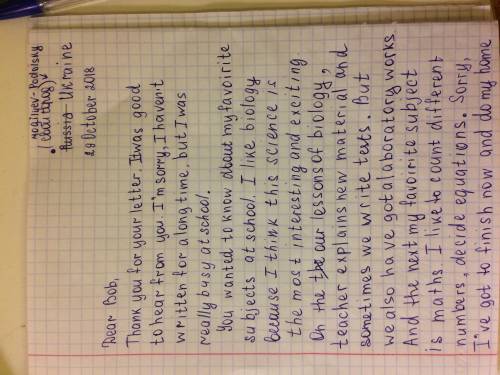 Mogilyev-Podolsky
Russia Ukraine
29 October 2018
Dear Bob,
Thank you for your letter. It was good
to hear from you. I'm sorry, I haven't
written for a long time, but I was
really busy at school.
You wanted to know about my favoirite
subjects at school. I like biology
because I think this science is
the most interesting and exciting.
On the the our lessons of biology,
teacher explains new material and
sometimes we write tests. But
we also have got a laboratory works
And the next my favoirite subject
is maths. I like to count different
numbers, decide equations. Sorry,
I've got to finish now and do my home